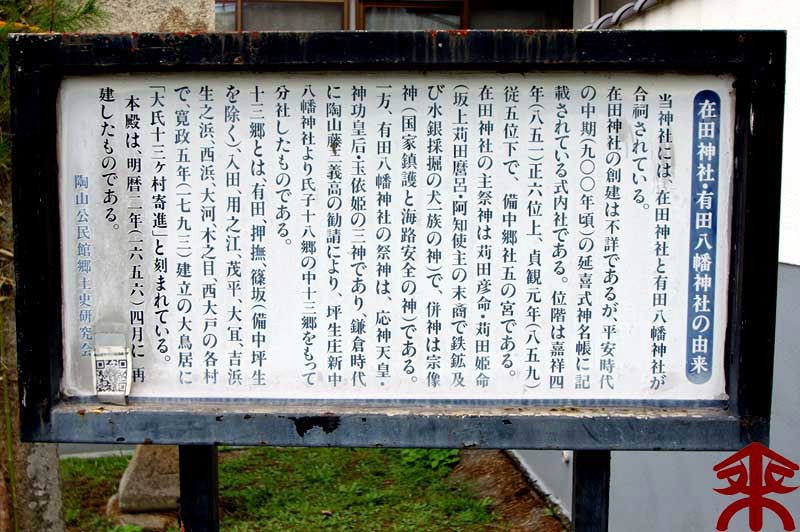 在田神社・有田八幡神社の由来
当神社には、在田神社と有田八幡神社が
合祠されている。
在田神社の創建は不詳であるが、平安時代
の中期(九〇〇年頃)の延喜式神名帳に記
載されている式内社である。位階は嘉祥四
年(八五一)正六位上、貞観元年(八五九)
従五位下で、備中郷社五の宮である。
在田神社の主祭神は苅田彦命・苅田姫命
(坂上苅田麿呂・阿知使主の末裔で鉄鉱及
び水銀採掘の犬一族の神)で、併神は宗像
神(国家鎮護と海路安全の神)である。
一方、有田八幡神社の祭神は、応神天皇・
神功皇后・玉依姫の三神であり、鎌倉時代
に陶山藤三義高の勧請により、坪生庄新中
八幡神社より氏子十八郷の中十三郷をもって
分社したものである。
十三郷とは、有田、押撫、篠坂(備中坪生
を除く)、入田、用之江、茂平、大冝、吉浜
生之浜、西浜、大河、木之目、西大戸の各村
で、寛政五年(一七九三)建立の大鳥居に
「大氏十三ヶ村寄進」と刻まれている。
本殿は、明暦二年(一六五六)四月に再
建したものである。
陶山公民館郷土史研究会